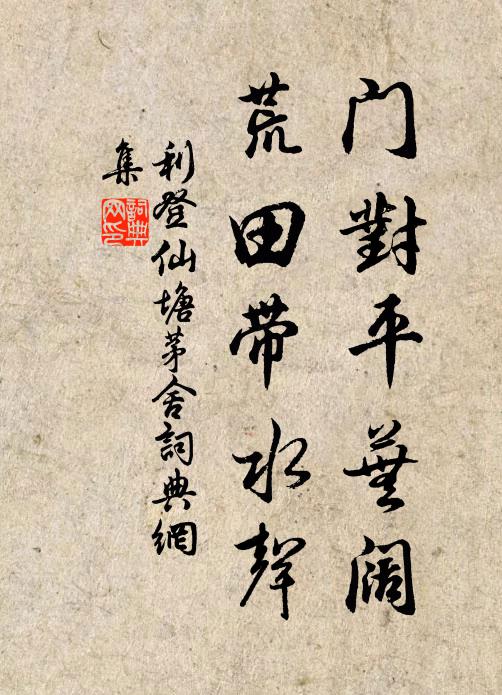 門對平蕪闊
荒田帶水聲
利登仙塘茅舍詞典網
集
詞典网印